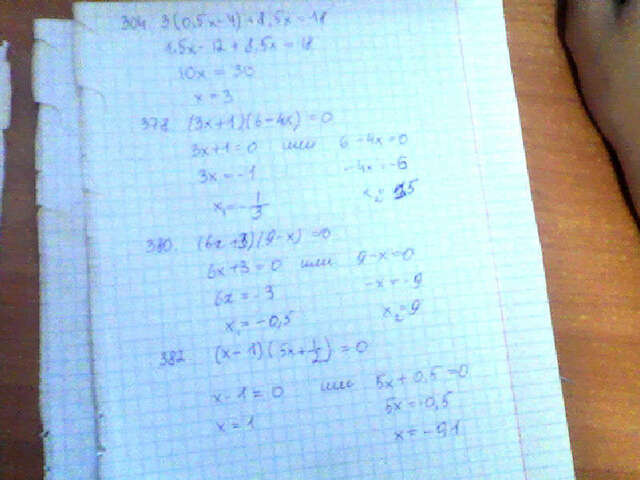 304. 3(0,5x-4)+8,5x=18
1,5x-12+8,5x=18
10x=30
x=3
378. (3x+1)(6-4x)=0
3x+1=0 или 6-4x=0
3x=-1 -4x=-6
x₁=-1/3 x₂=1,5
380. (6x+3)(9-x)=0
6x+3=0 или 9-x=0
6x=-3 -x=-9
x₁=-0,5 x₂=9
382 (x-1)(5x+1/2)=0
x-1=0 или 5x+0,5=0
x=1 5x=-0,5
x=-0,1